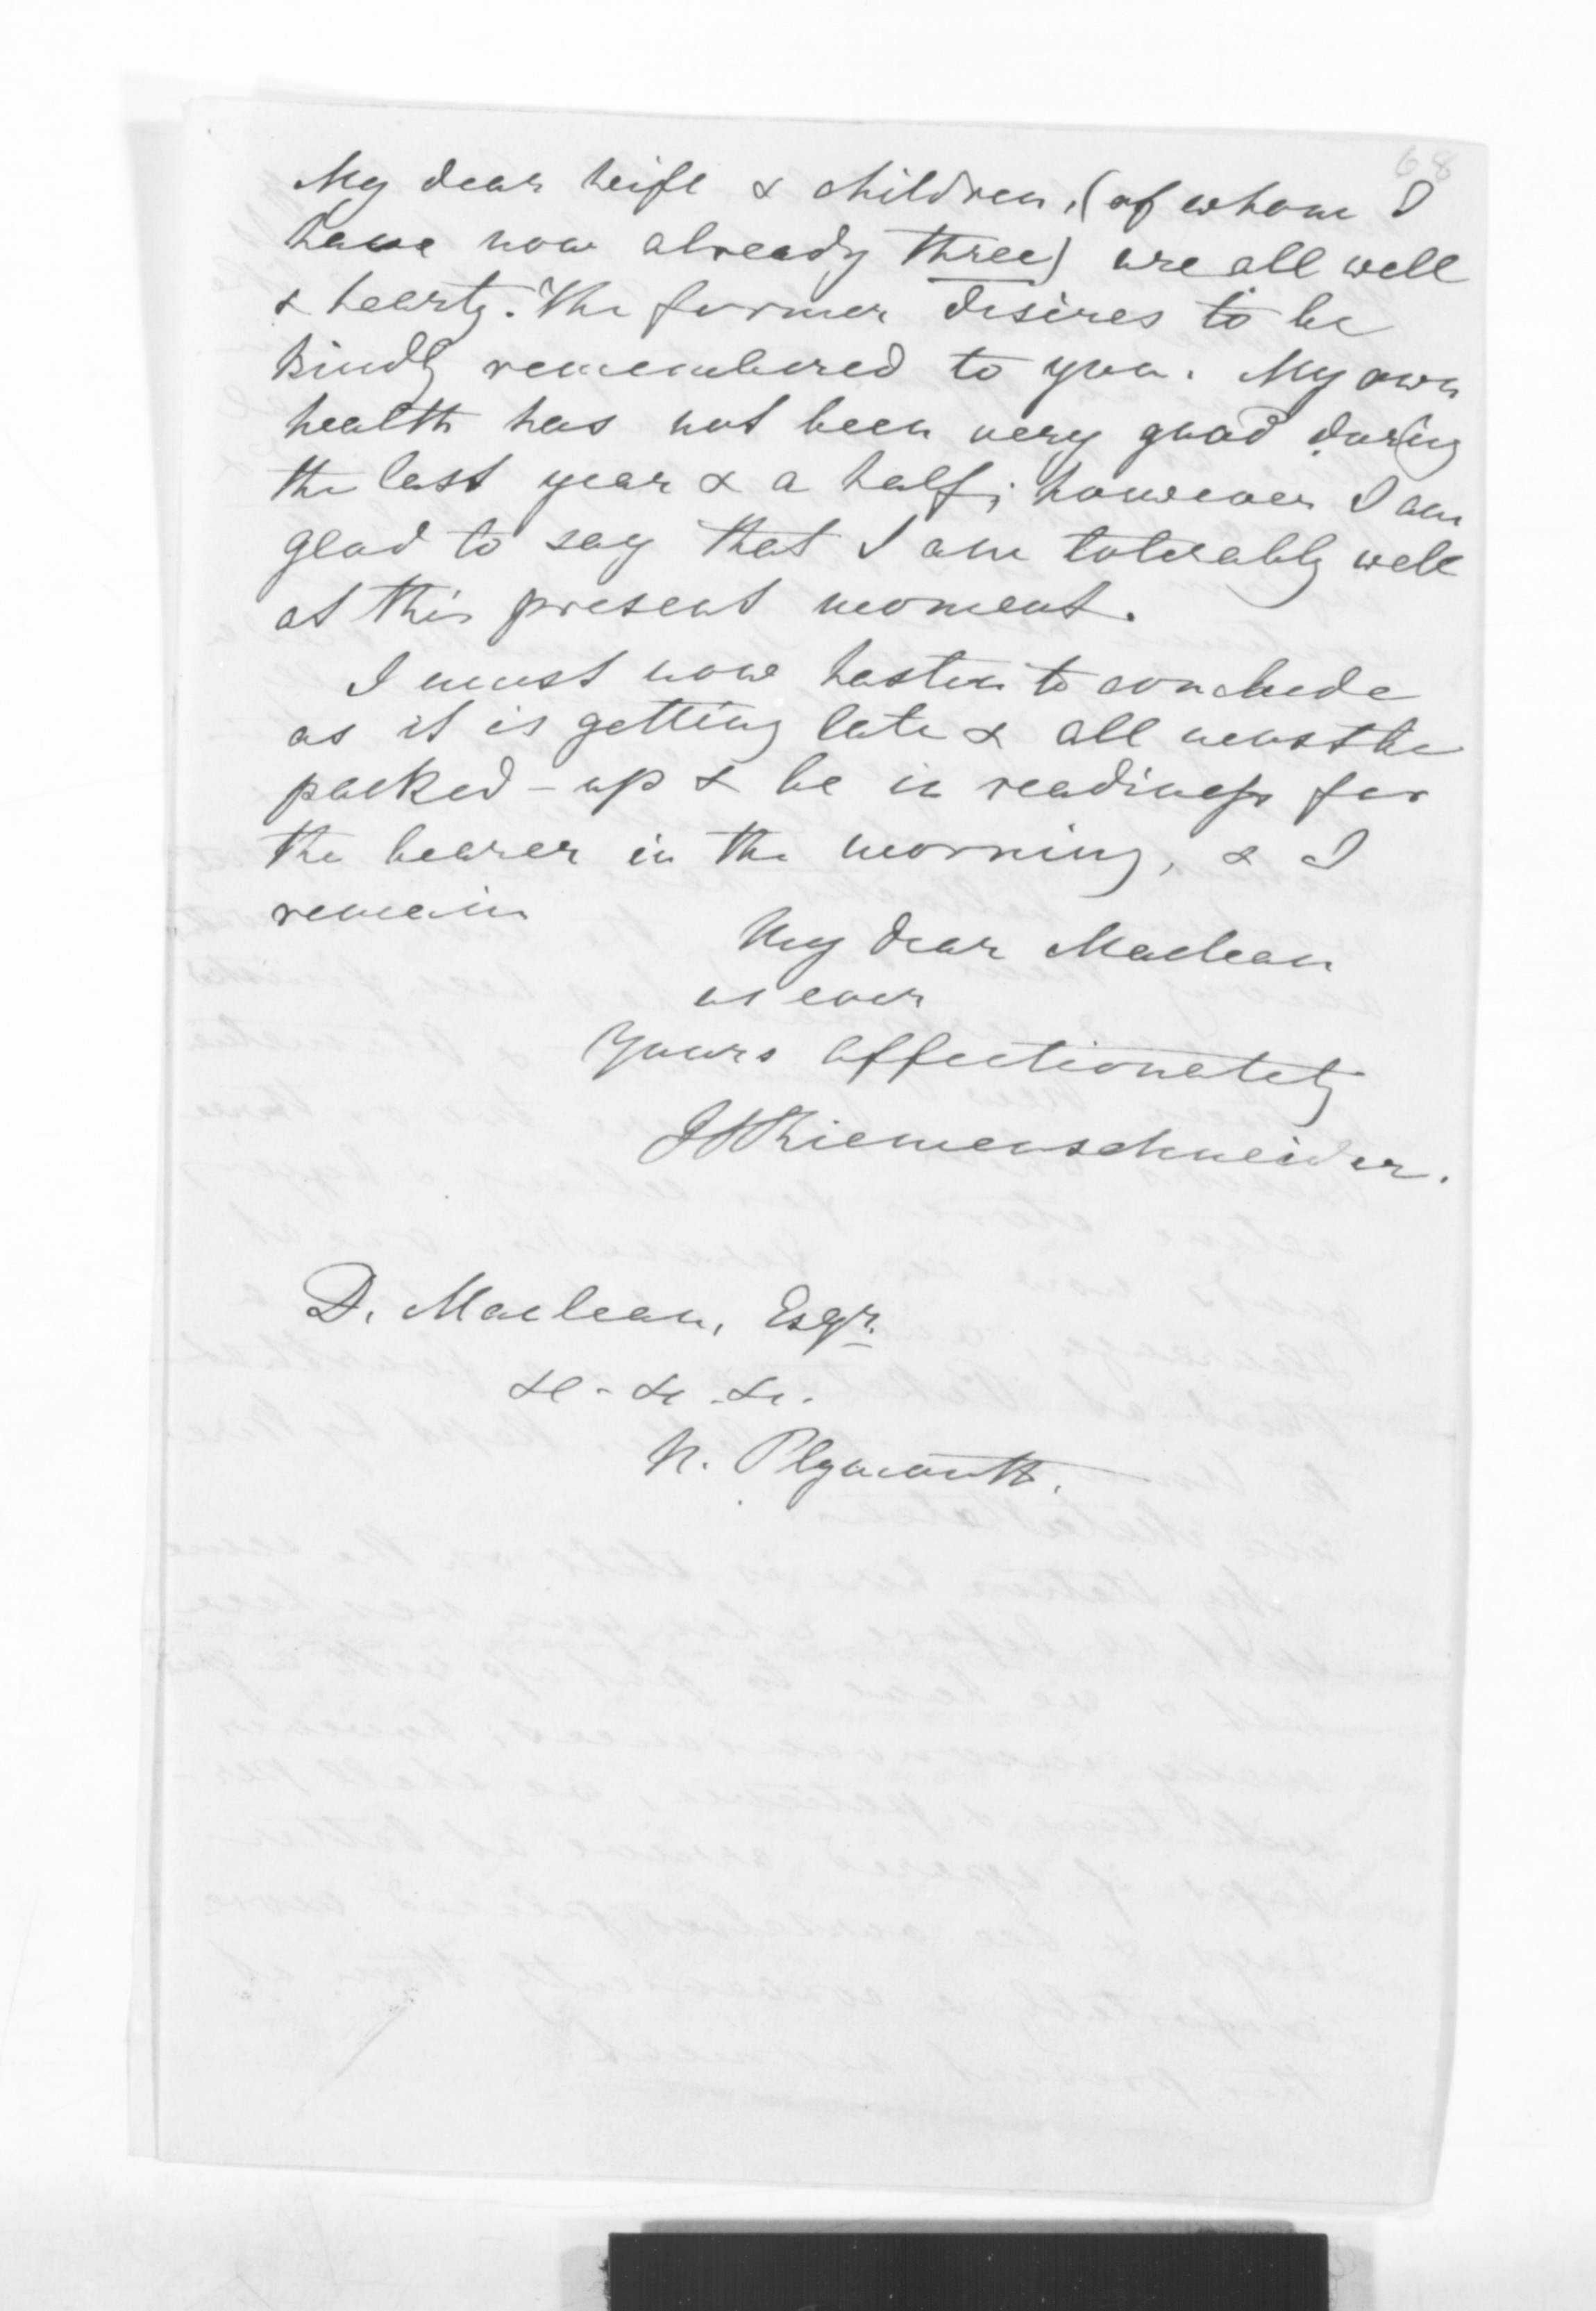 68
My dear wife & children, (of whom I
have now already three) are all well
& hearty. The former desires to be
kindly remembered to you. My own
health has not been very good during
the last year & a half; however I am
glad to say that I am tolerably well
at this present moment.
I must now hasten to conclude
as it is getting late & all must be
packed-up & be in readiness for
the bearer in the morning, & I
remain
My dear Maclean
as ever
Yours affectionately
J F Riemenschneider.
D. Maclean, Esqr.
&c. &c. &c.
N. Plymouth.